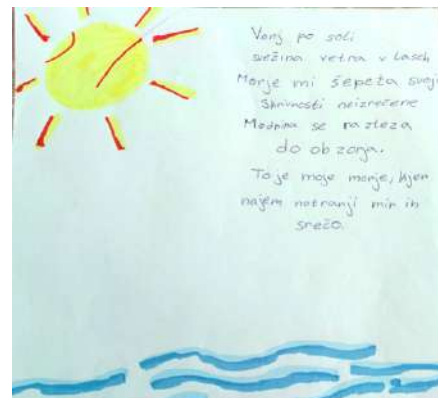 Vonj po soli
svežina vetra v laseh
Morje mi šepeta svoje
Skrivnosti neizrečene
Modrina se razteza
do obzorja.
To je moje morje, kjer
najem notranji mir in
srečo.